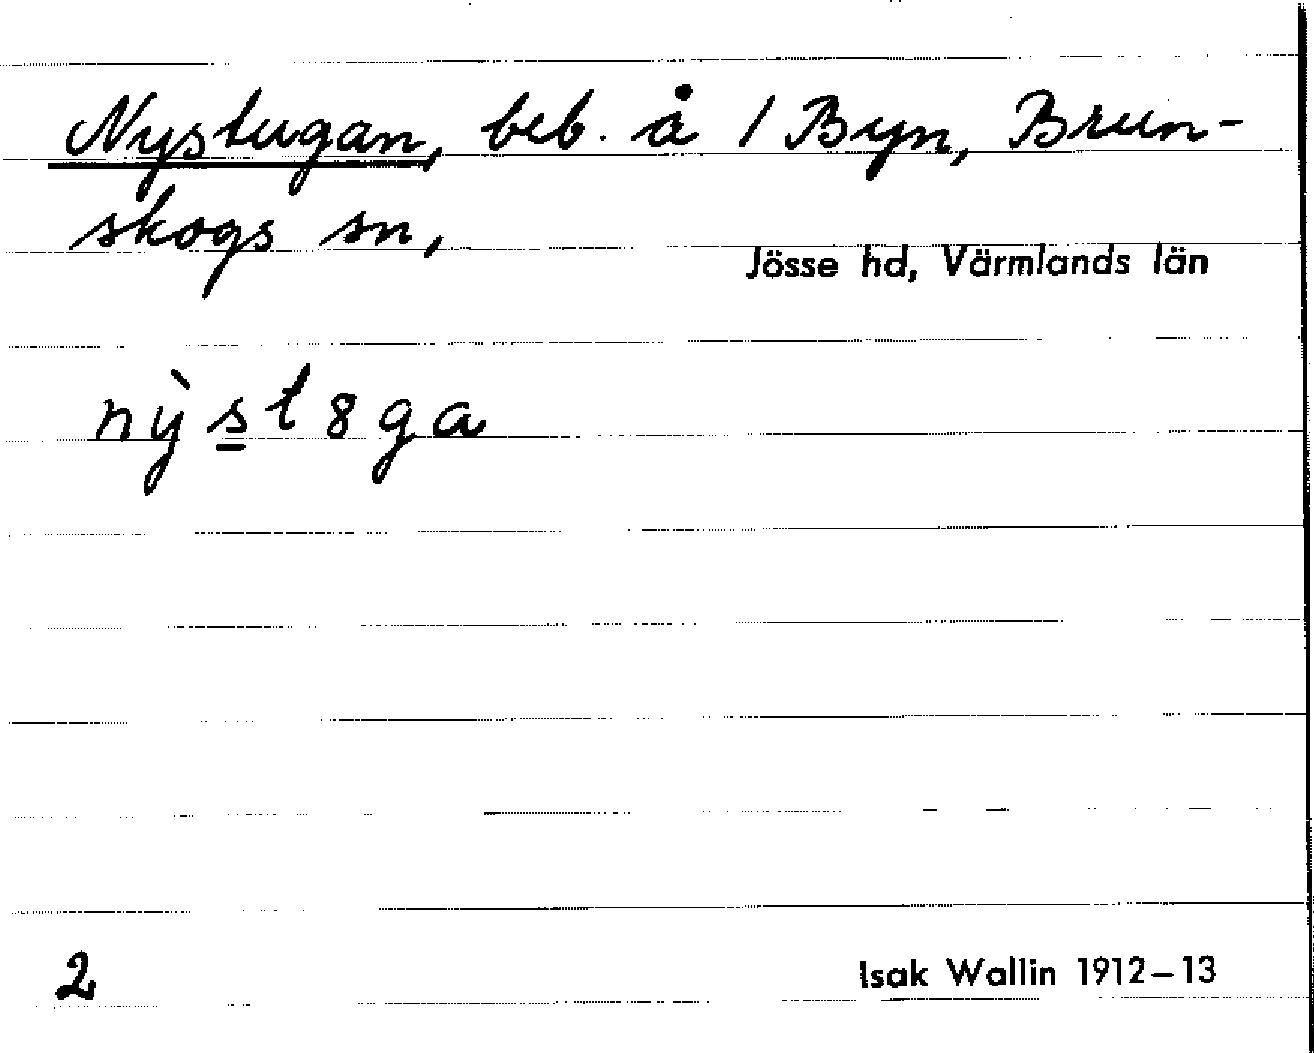 Nystugan, beb. å 1 Byn, Brun-
skogs sn,
Jösse hd, Värmlands län
nỳst8ga
2
Isak Wallin 1912–13